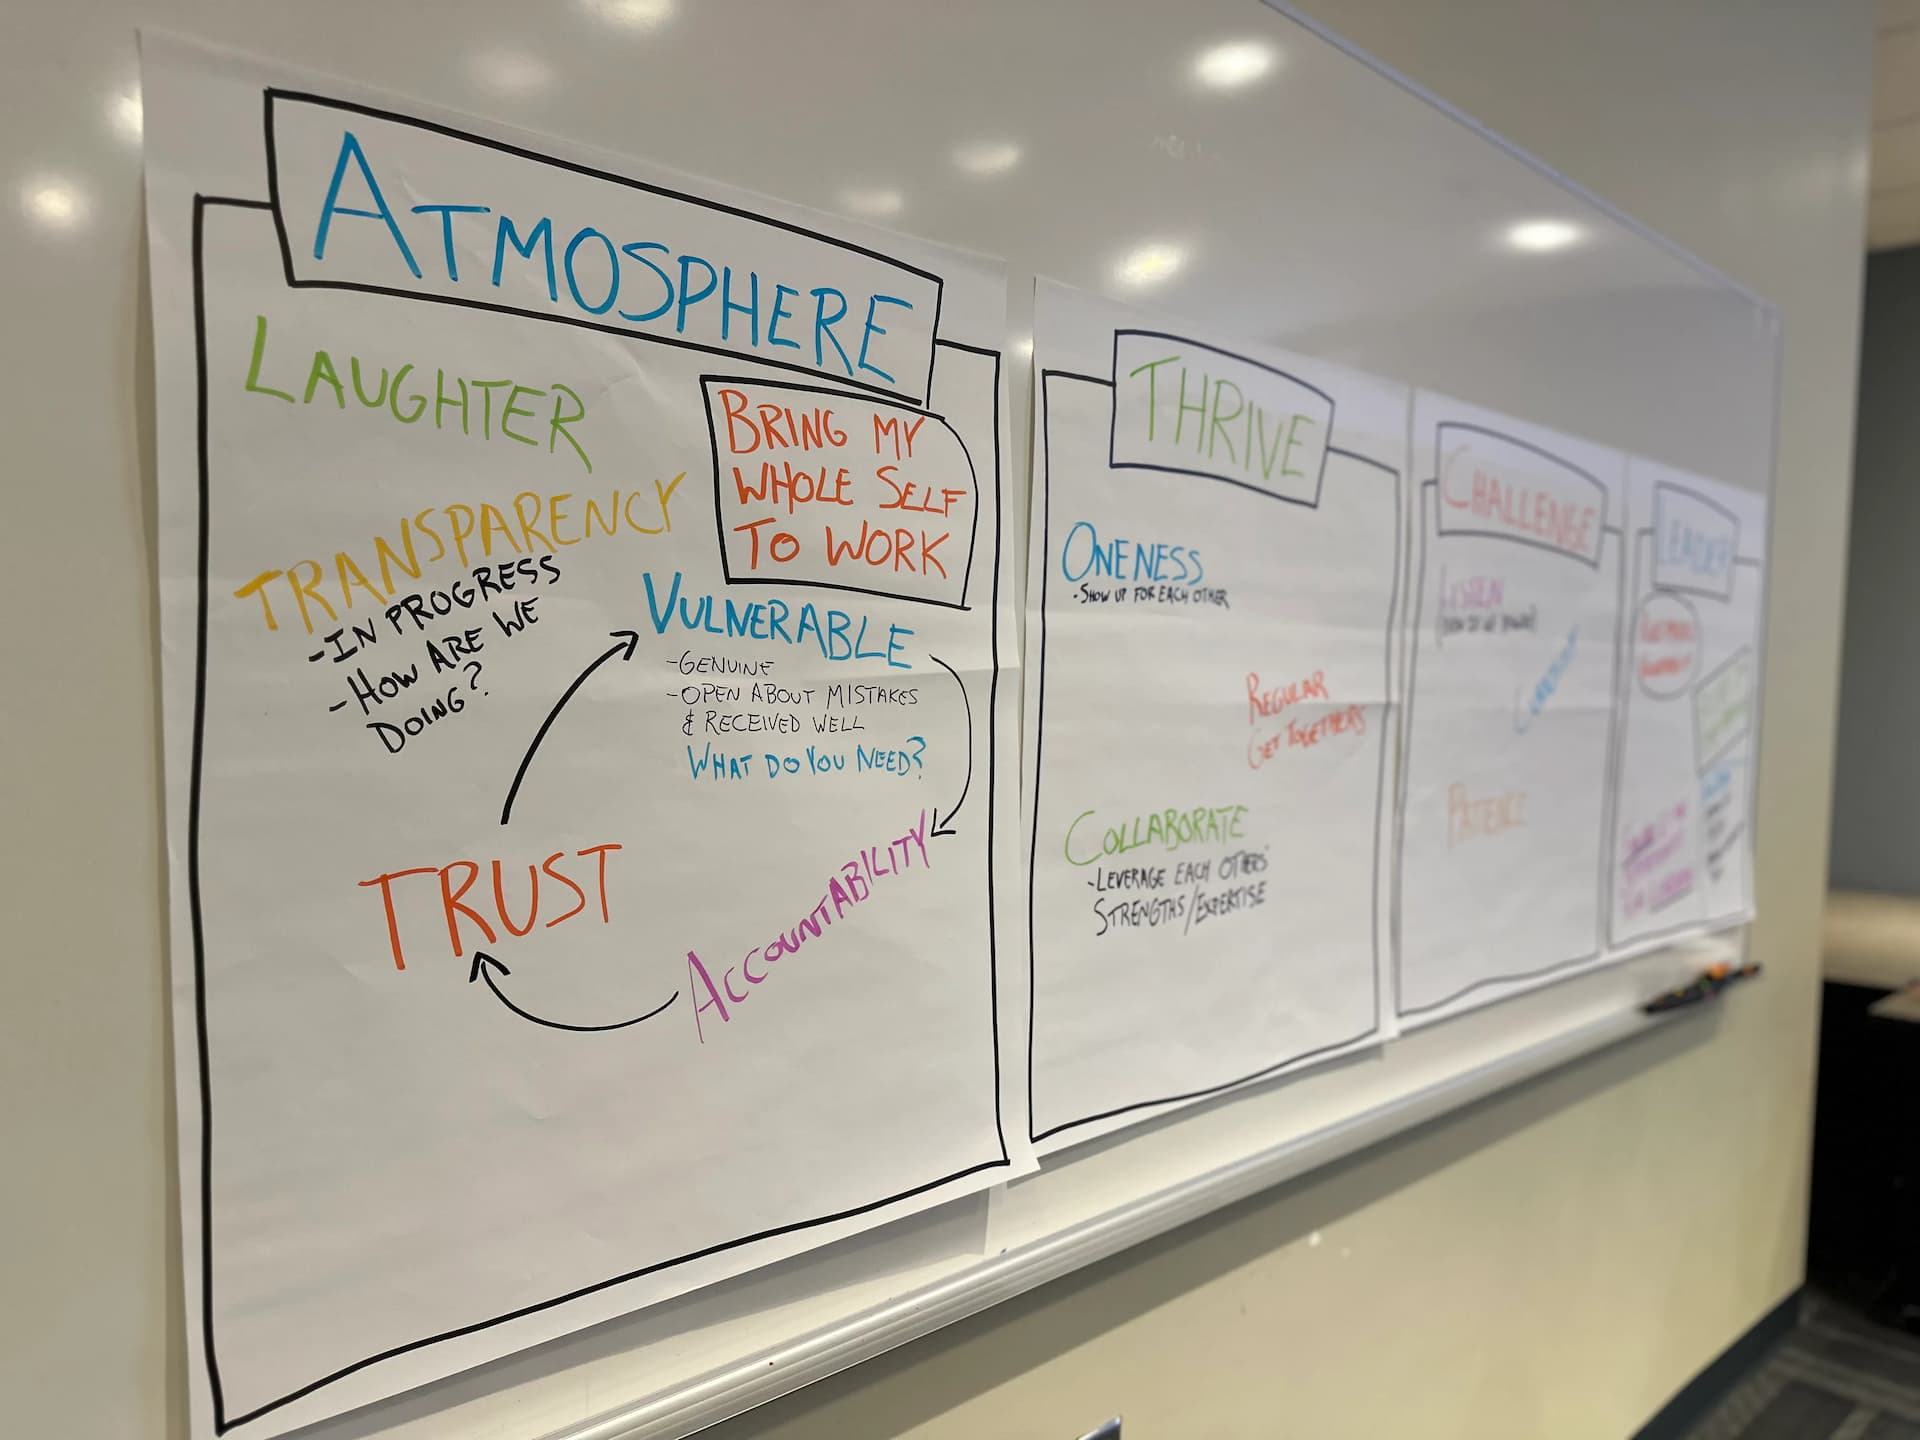 ATMOSPHERE
LAUGHTER
BRING MY
WHOLE SELF
TO WORK
TRANSPARENCY
-IN PROGRESS
-HOW ARE WE
DOING?
VULNERABLE
-GENUINE
-OPEN ABOUT MISTAKES
& RECEIVED WELL
WHAT DO YOU NEED?
TRUST
ACCOUNTABILITY
THRIVE
ONENESS
-SHOW UP FOR EACH OTHER
REGULAR
GET TOGETHERS
COLLABORATE
-LEVERAGE EACH OTHERS'
STRENGTHS/EXPERTISE
CHALLENGE
LISTEN
PATIENCE